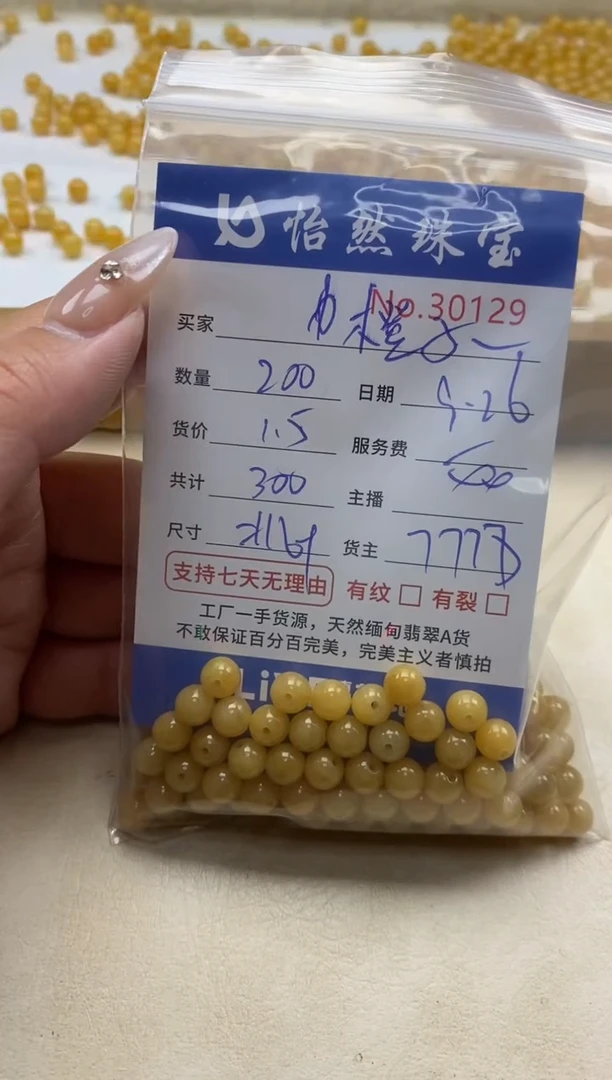 怡然珠宝
No.30129
买家
数量 200 日期 9.26
货价 1.5 服务费
共计 300 主播
尺寸 货主 777
支持七天无理由 有纹 □ 有裂 □
工厂一手货源，天然缅甸翡翠A货
不敢保证百分百完美，完美主义者慎拍